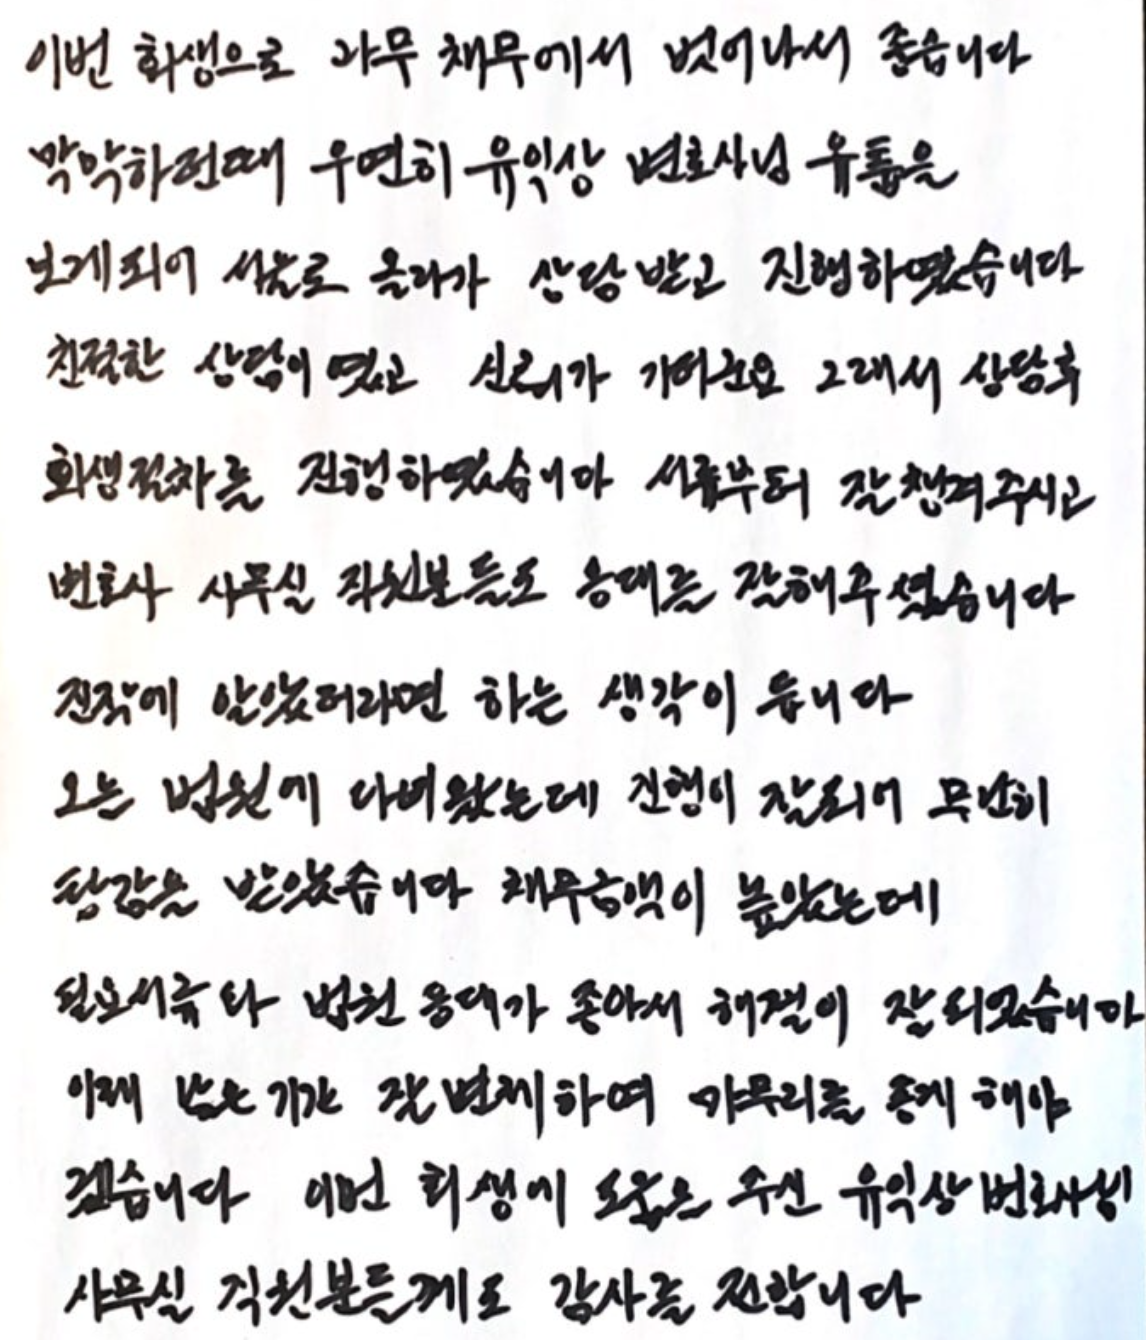 이번 회생으로 과무 채무에서 벗어나서 좋습니다
막막하던때 우연히 유익상 변호사님 유튭을
보게되어 서울로 올라가 상담받고 진행하였습니다
친절한 상담이 였고 신뢰가 가더군요 그래서 상담후
회생절차를 진행하였습니다 서류부터 잘 챙겨주시고
변호사 사무실 직원분들도 응대를 잘해주셨습니다
진작에 알았더라면 하는 생각이 듭니다
오늘 법원에 다녀왔는데 진행이 잘되어 무난히
탕감을 받았습니다 채무금액이 높았는데
필요서류 타 법원 응대가 좋아서 해결이 잘 되었습니다
이제 남은 기간 잘 변제하여 마무리를 좋게 해야
겠습니다 이번 회생에 도움을 주신 유익상 변호사님
사무실 직원분들께도 감사를 전합니다